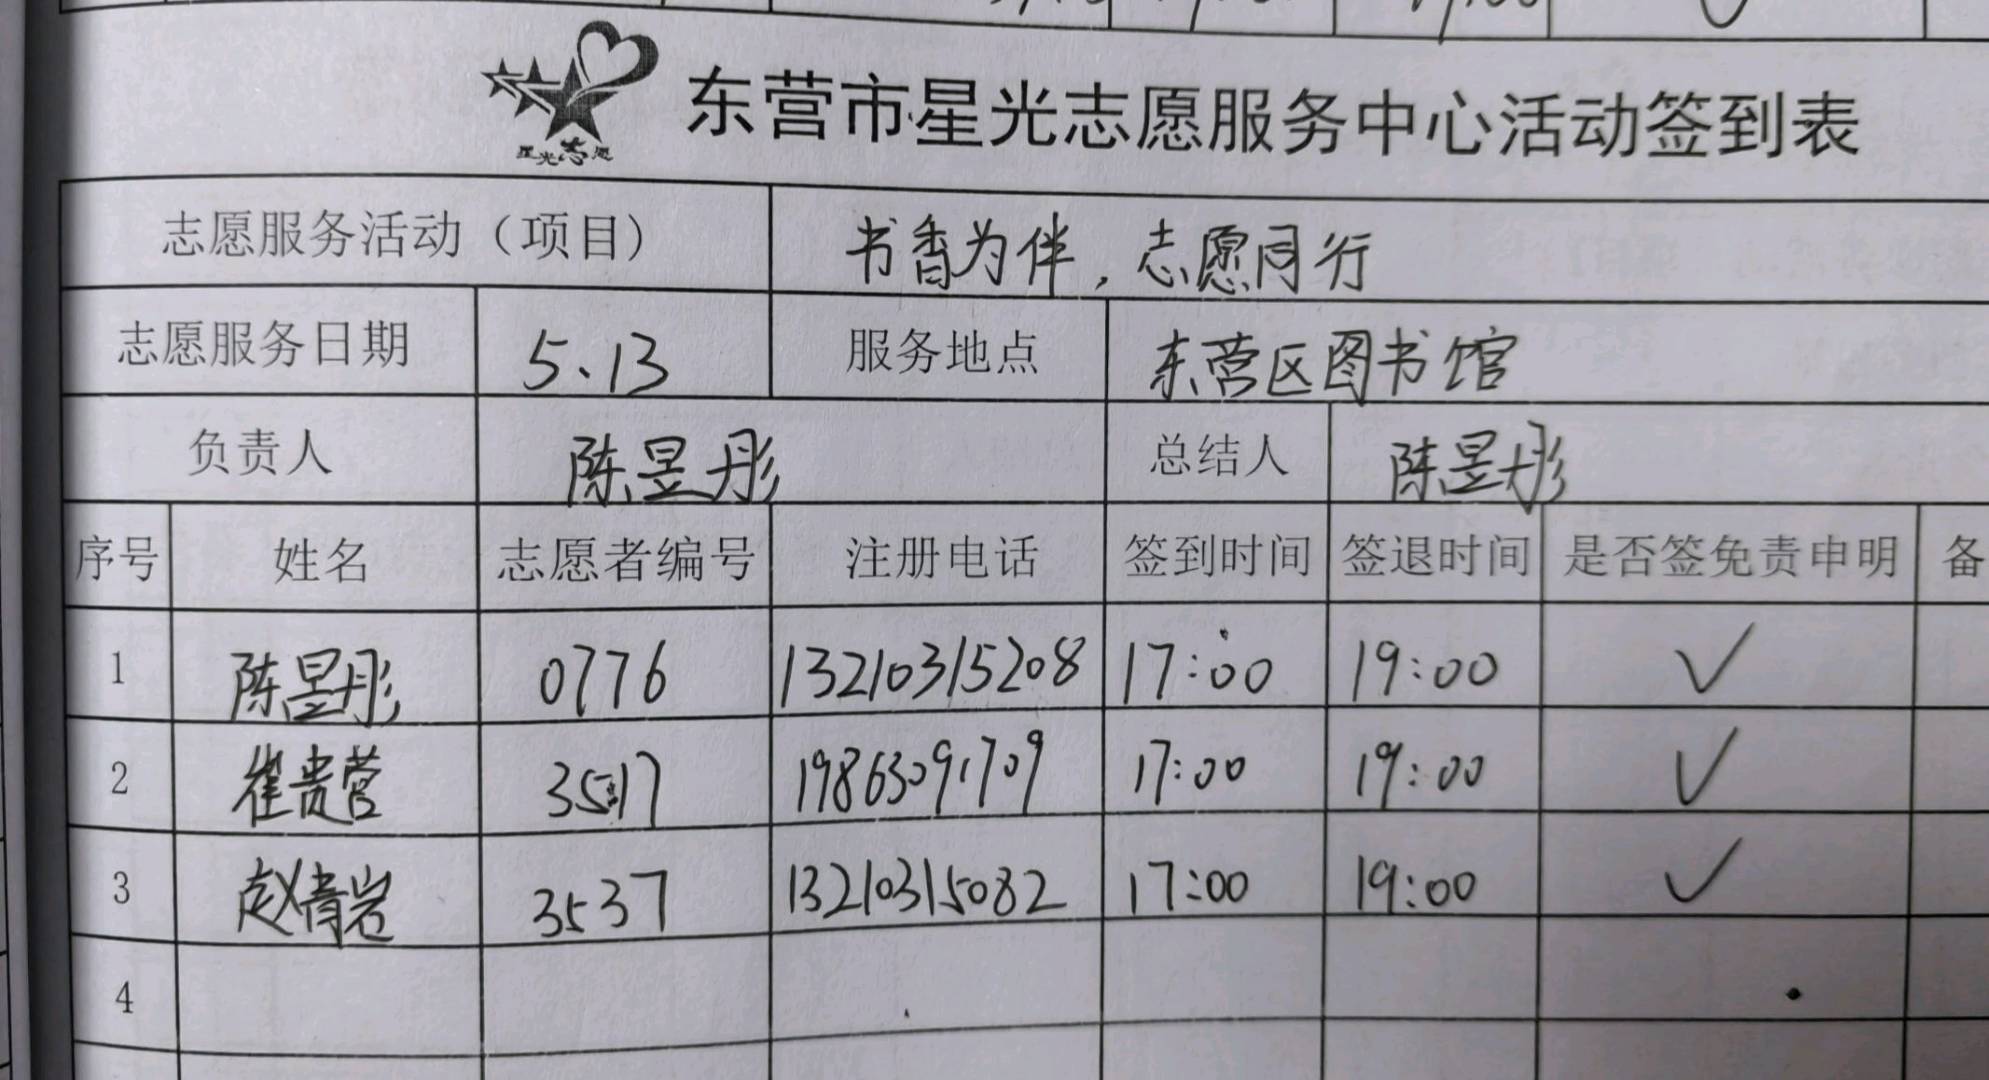 星光志愿
东营市星光志愿服务中心活动签到表
志愿服务活动（项目） 书香为伴，志愿同行
志愿服务日期 5.13 服务地点 东营区图书馆
负责人 陈昱彤 总结人 陈昱彤
序号 姓名 志愿者编号 注册电话 签到时间 签退时间 是否签免责申明 备
1 陈昱彤 0776 13210315208 17:00 19:00 ✓
2 崔贵营 3517 19863091709 17:00 19:00 ✓
3 赵青岩 3537 13210315082 17:00 19:00 ✓
4